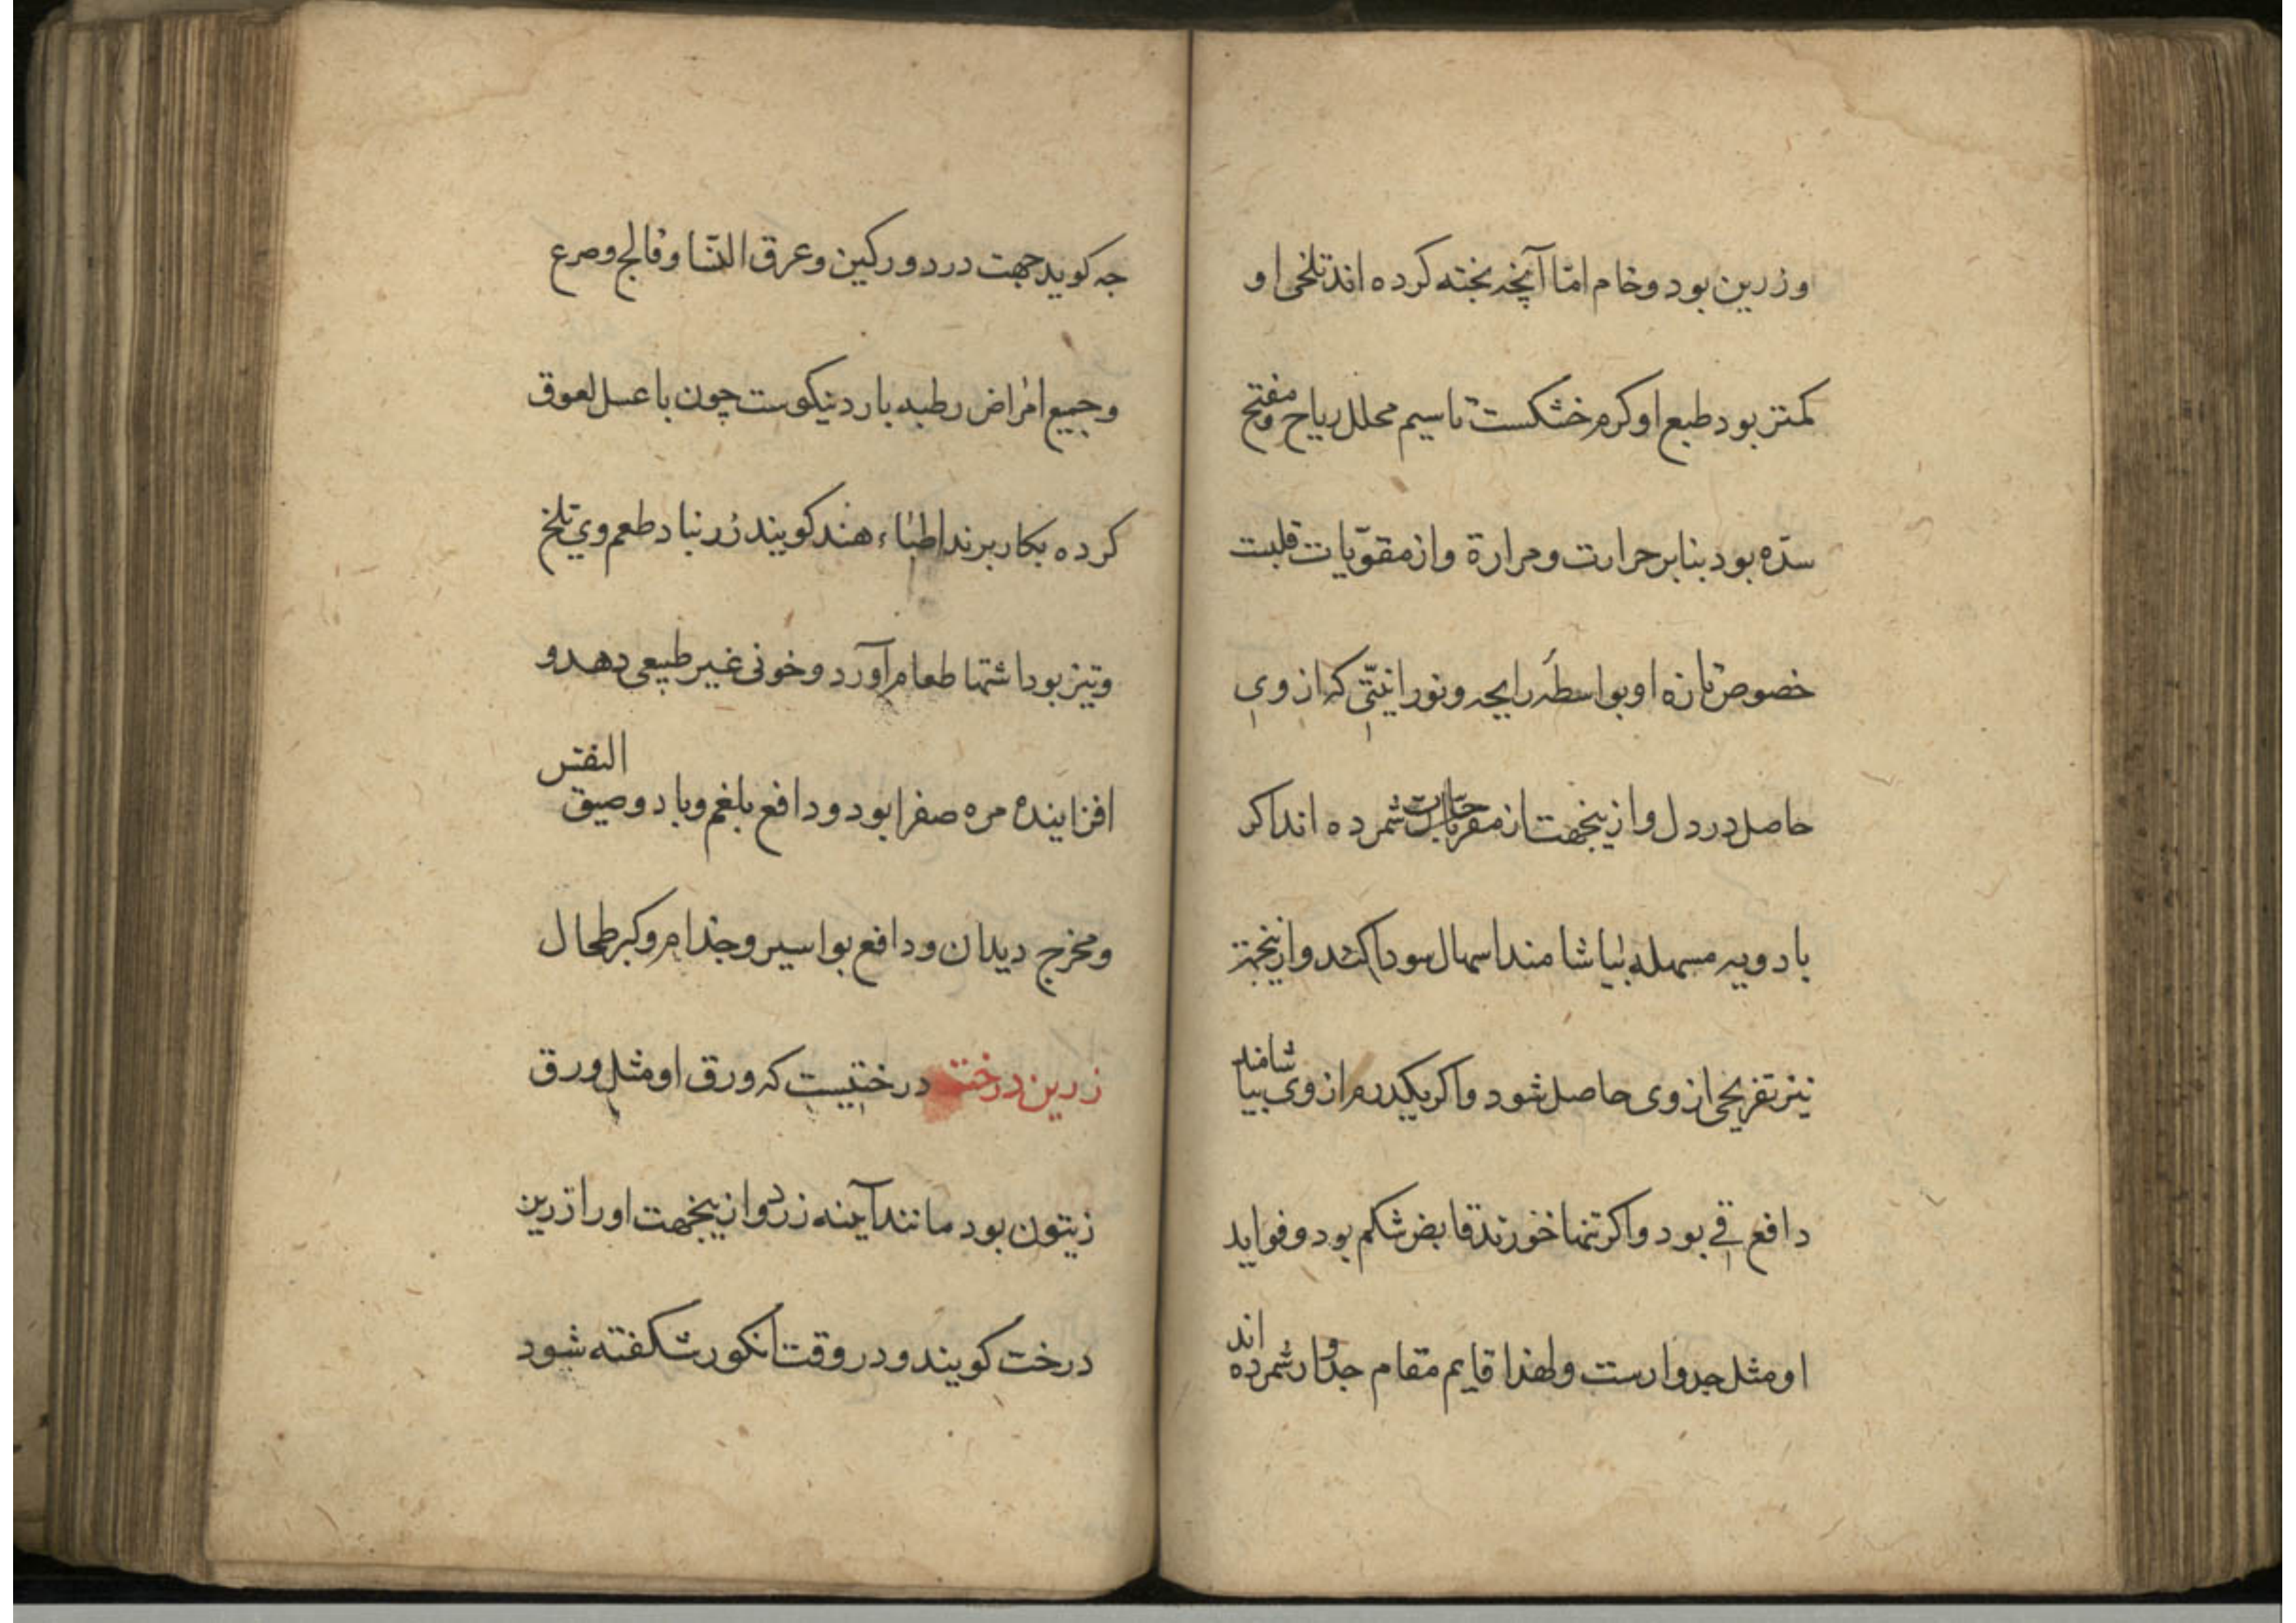 وزرین بود و خام امّا آنچه پخته کرده اند تلخی او
کمتر بود طبع او کرم خشکست تا سیم محلل ریاح و مفتح
سدّه بود بنابر حرارت و مرارة و از مقوّیات قلبست
خصوص تازه او بواسطهٔ رایحه و نورانیتی که از وی
حاصل در دل و ازینجهت از مفرحات شمرده اند اکر
بادویه مسهله بیاشامند اسهال سودا کند و ازینجهة
نیز تفریحی از وی حاصل شود و اکر یکدرم از وی بیاشامند
دافع قے بود و اکر تنها خورند قابض شکم بود و فواید
او مثل جدوارست و لهذا قایم مقام جدوار شمرده اند
جه کوید جهت درد ورکین و عرق النّسا و فالج و صرع
و جمیع امراض رطبه بارد نیکوست چون با عسل لعوق
کرده بکار برند اطباء هند کویند زرنباد طعم وی تلخ
و تیز بود اشتها طعام آورد و خونی غیر طبیعی دهد و
افزاینده مره صفرا بود و دافع بلغم و باد و ضیق النفس
و مخرج دیدان و دافع بواسیر و جذام و کبر طحال
زرین درخت درختیست که ورق او مثل ورق
زیتون بود مانند آینه زرد و ازینجهت او را زرین
درخت کویند و در وقت انکور شکفته شود